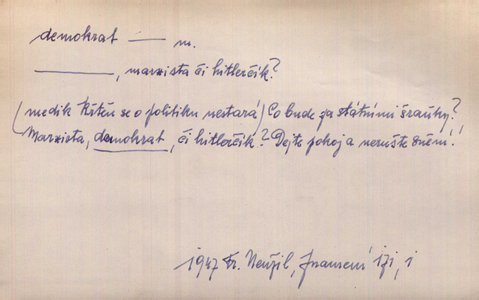 demokrat — m.
———, marxista či hitlerčík?
(medik Křten se o politiku nestará) Co bude za státními šrauky?
Marxista, demokrat, či hitlerčík? Dejte pokoj a nerušte sněm!
1947 Fr. Neužil, Znamení 121, i